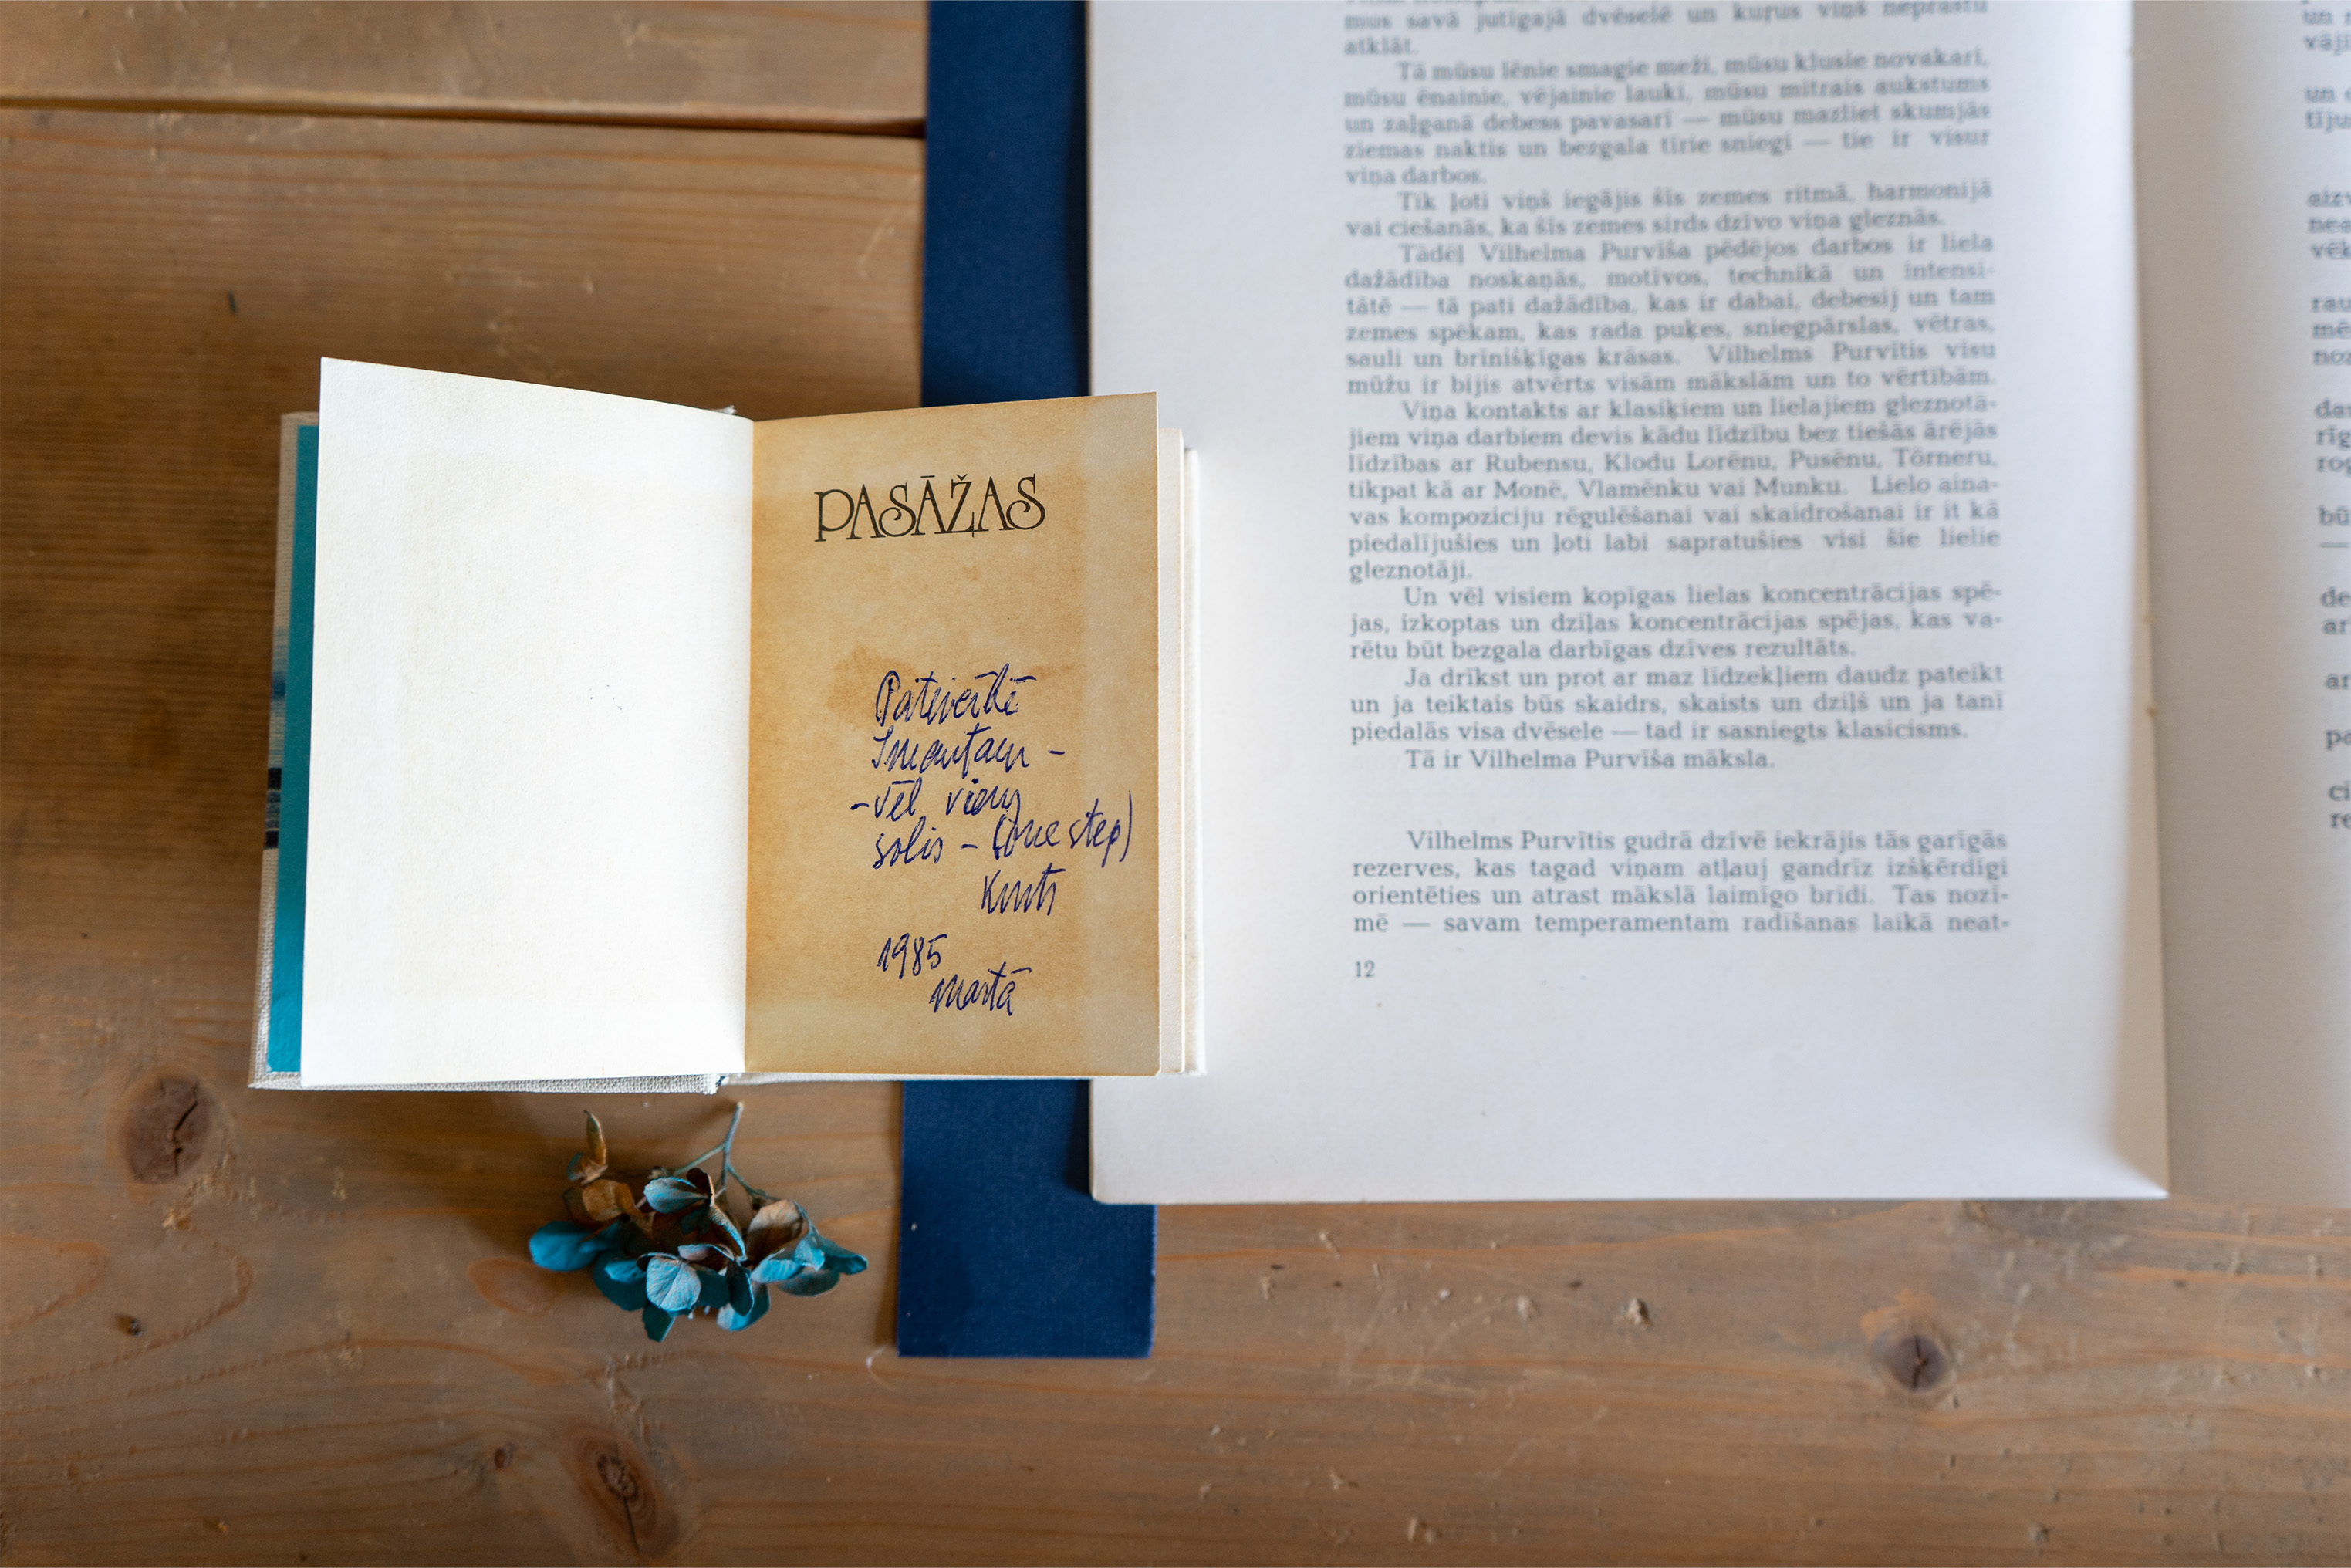 PASĀŽAS
Pateicībā
Imantam –
– vēl vienu
solis – (one step)
Knuts
1985
martā
mus savā jutīgajā dvēselē un kuŗus viņš neprastu
atklāt.
Tā mūsu lēnie smagie meži, mūsu klusie novakari,
mūsu ēnainie, vējainie lauki, mūsu mitrais aukstums
un zaļganā debess pavasarī — mūsu mazliet skumjās
ziemas naktis un bezgala tīrie sniegi — tie ir visur
viņa darbos.
Tik ļoti viņš iegājis šīs zemes ritmā, harmonijā
vai ciešanās, ka šīs zemes sirds dzīvo viņa gleznās.
Tādēļ Vilhelma Purvīša pēdējos darbos ir liela
dažādība noskaņās, motīvos, technikā un intensi-
tātē — tā pati dažādība, kas ir dabai, debesij un tam
zemes spēkam, kas rada puķes, sniegpārslas, vētras,
sauli un brīnišķīgas krāsas. Vilhelms Purvītis visu
mūžu ir bijis atvērts visām mākslām un to vērtībām.
Viņa kontakts ar klasiķiem un lielajiem gleznotā-
jiem viņa darbiem devis kādu līdzību bez tiešās ārējās
līdzības ar Rubensu, Klodu Lorēnu, Pusēnu, Tōrneru,
tikpat kā ar Monē, Vlamēnku vai Munku. Lielo aina-
vas kompoziciju rēgulēšanai vai skaidrošanai ir it kā
piedalījušies un ļoti labi sapratušies visi šie lielie
gleznotāji.
Un vēl visiem kopīgas lielas koncentrācijas spē-
jas, izkoptas un dziļas koncentrācijas spējas, kas va-
rētu būt bezgala darbīgas dzīves rezultāts.
Ja drīkst un prot ar maz līdzekļiem daudz pateikt
un ja teiktais būs skaidrs, skaists un dziļš un ja tanī
piedalās visa dvēsele — tad ir sasniegts klasicisms.
Tā ir Vilhelma Purvīša māksla.
Vilhelms Purvītis gudrā dzīvē iekrājis tās garīgās
rezerves, kas tagad viņam atļauj gandrīz izšķērdīgi
orientēties un atrast mākslā laimīgo brīdi. Tas nozī-
mē — savam temperamentam radīšanas laikā neat-
12